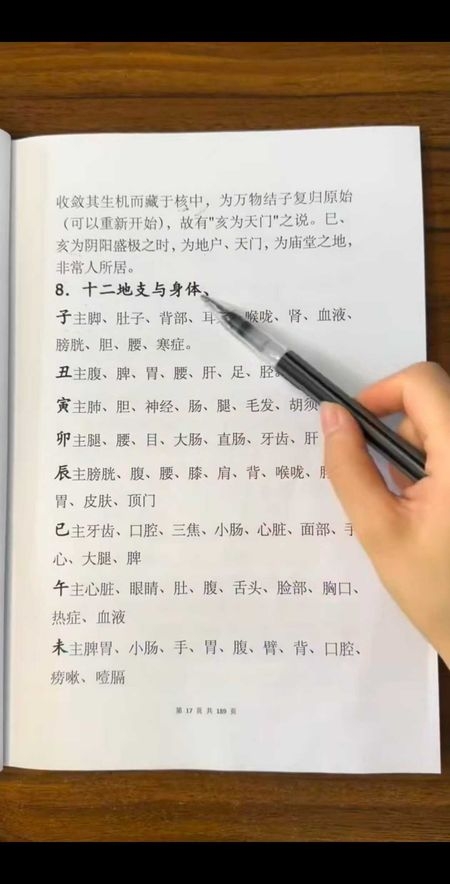 收敛其生机而藏于核中，为万物结子复归原始
（可以重新开始），故有"亥为天门"之说。巳、
亥为阴阳盛极之时，为地户、天门，为庙堂之地，
非常人所居。
8. 十二地支与身体、
子主脚、肚子、背部、耳 喉咙、肾、血液、
膀胱、胆、腰、寒症。
丑主腹、脾、胃、腰、肝、足、胫。
寅主肺、胆、神经、肠、腿、毛发、胡须
卯主腿、腰、目、大肠、直肠、牙齿、肝
辰主膀胱、腹、腰、膝、肩、背、喉咙、
胃、皮肤、顶门
巳主牙齿、口腔、三焦、小肠、心脏、面部、手
心、大腿、脾
午主心脏、眼睛、肚、腹、舌头、脸部、胸口、
热症、血液
未主脾胃、小肠、手、胃、腹、臂、背、口腔、
痨嗽、噎膈
第 17 页 共 189 页